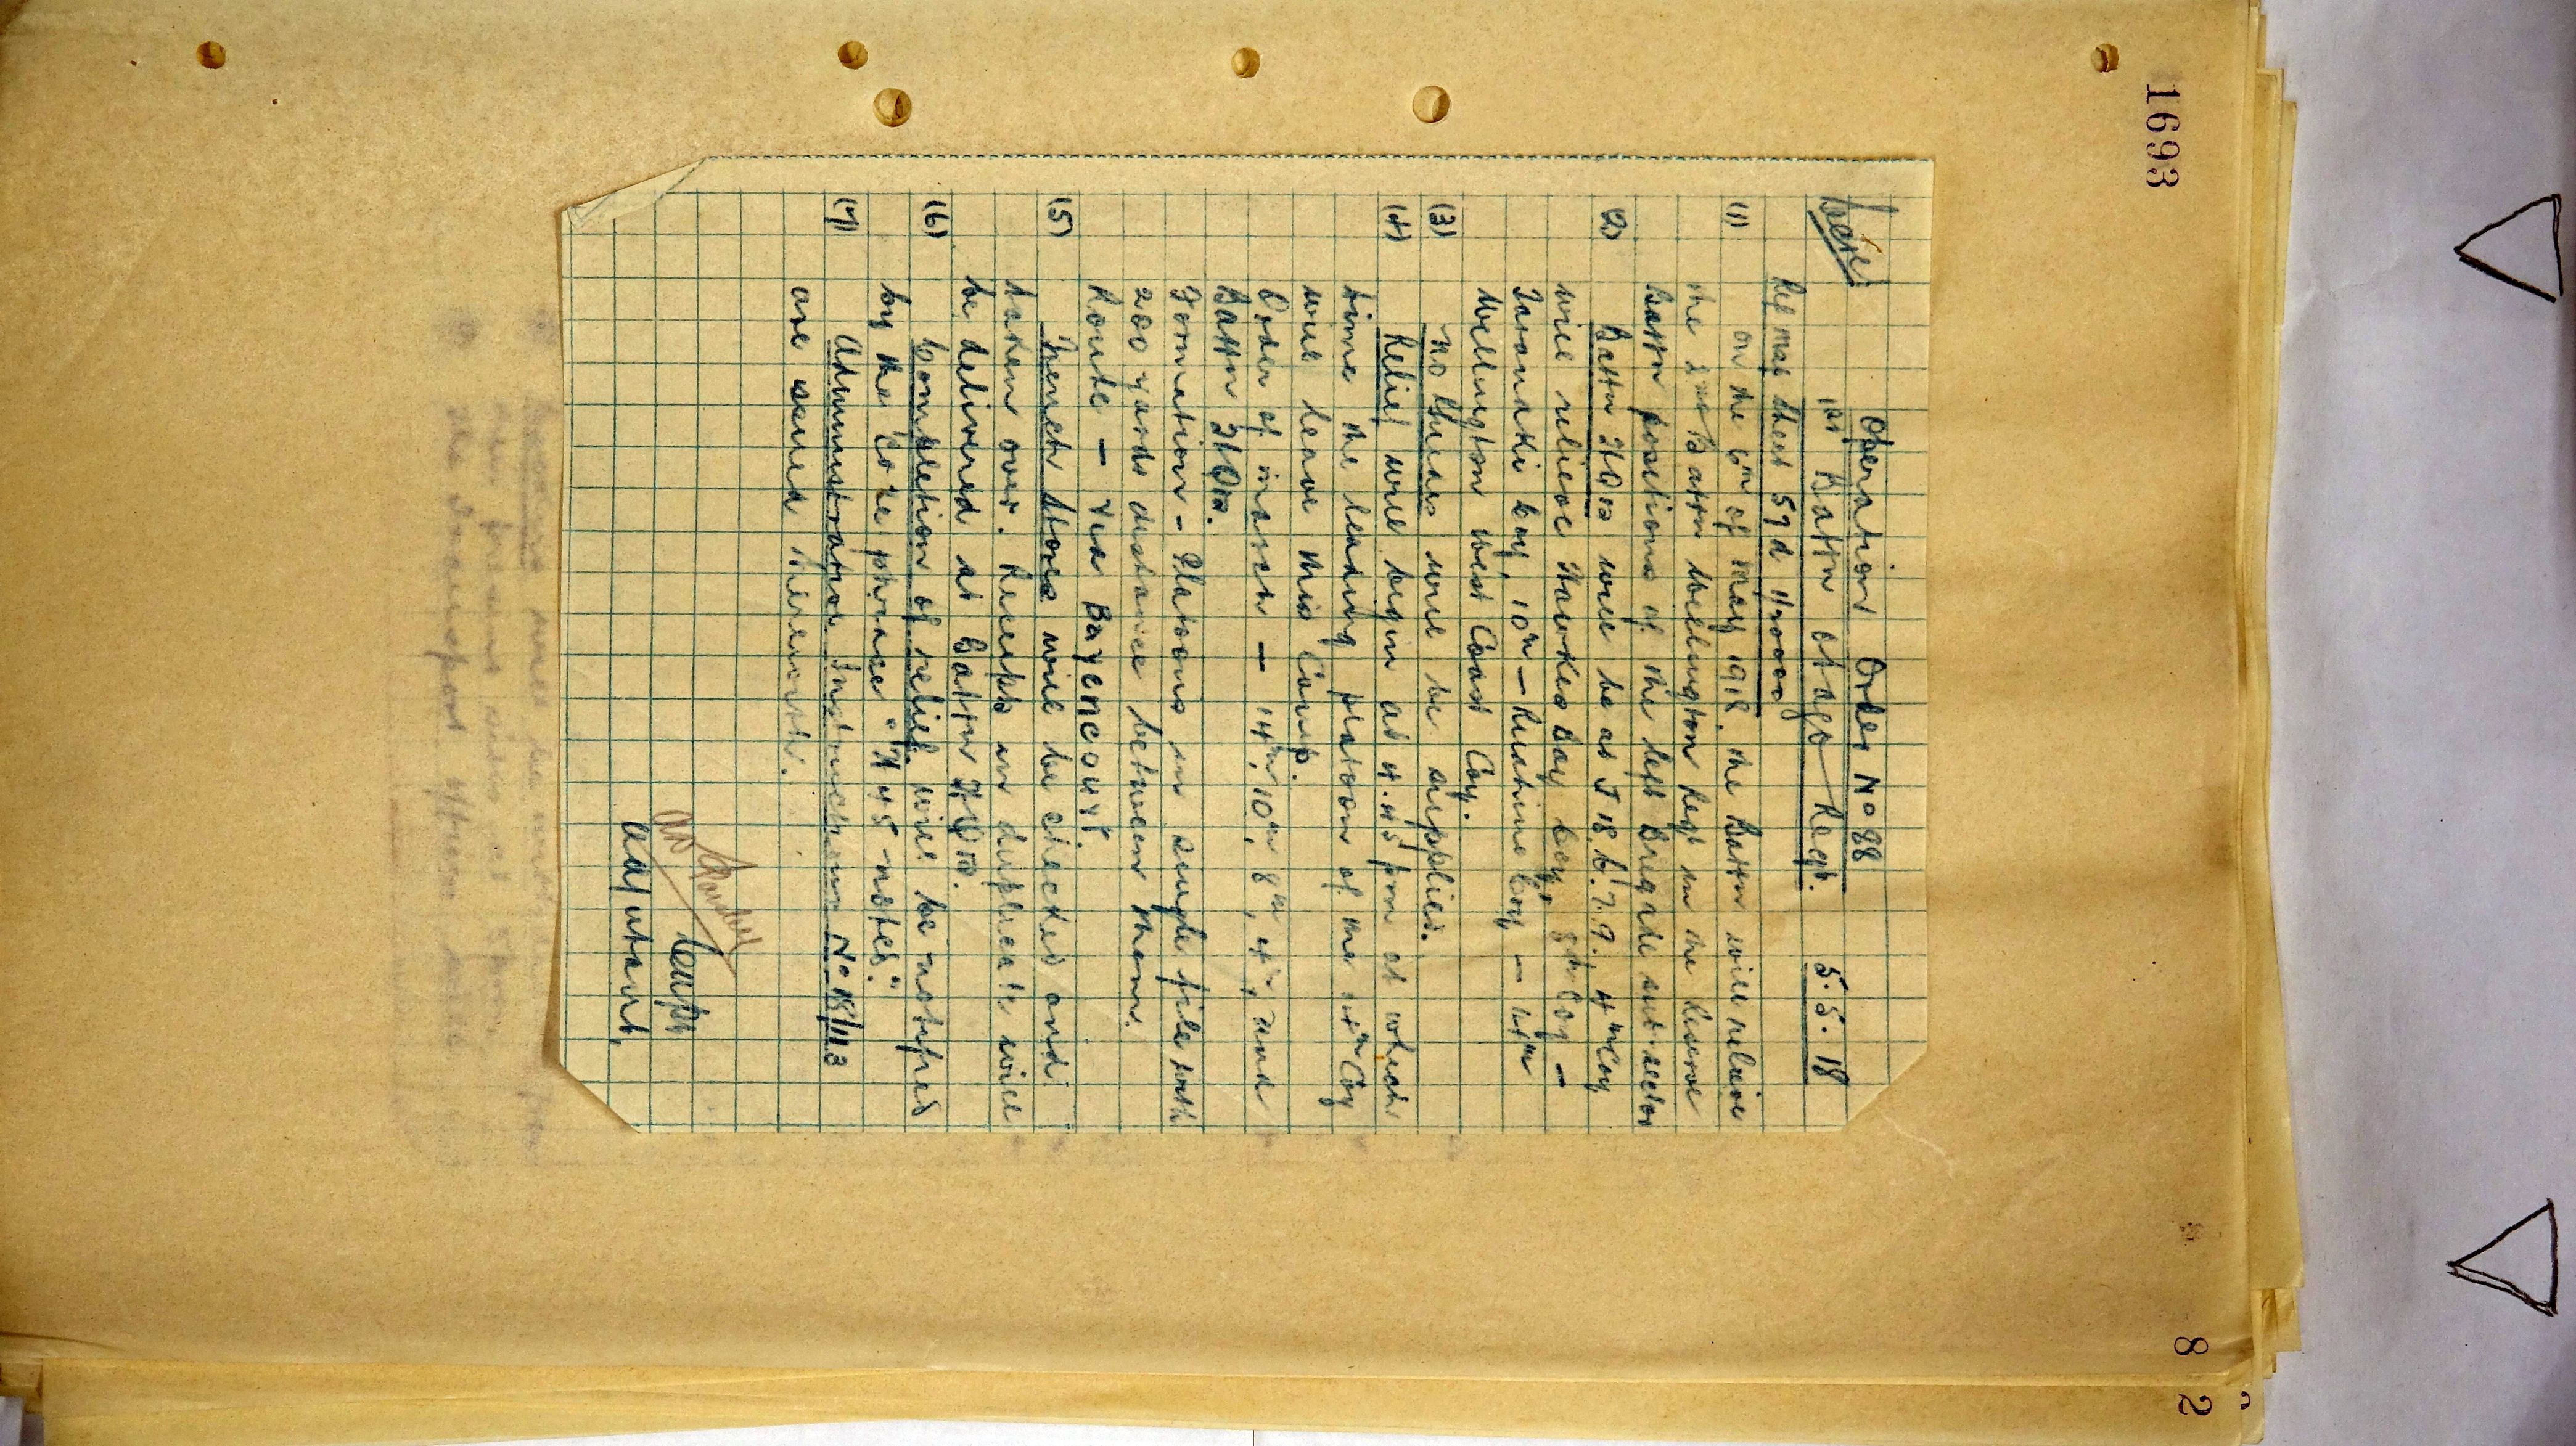 1693
Secret
Operation Order No 88
1st Battn Otago Regt. 5.5.18
Ref map Sheet 57d 1/20000
(1) On the 6th of May 1918, the Battn will relieve
the 2nd Battn Wellington Regt in the Reserve
Battn positions of the left Brigade sub-sector
(2) Battn HQrs will be at J 18. b. 7.9. 4th Coy
will relieve Hawkes Bay Coy, 8th Coy –
Taranaki Coy, 10th – Ruahine Coy – 14th
Wellington West Coast Coy.
(3) No Guides will be supplied.
(4) Relief will begin at 4.45 pm at which
time the leading platoon of the 14th Coy
will leave this Camp.
Order of march – 14th, 10th, 8th, 4th, and
Battn HQrs.
Formation – Platoons in single file with
200 yards distance between them.
Route – via Bayencourt.
(5) Trench Stores will be checked and
taken over. Receipts in duplicate will
be delivered at Battn HQrs.
(6) Completion of relief will be notified
by the Code phrase "H 45 noted."
(7) Administrative Instructions No
are issued herewith.
Capt
Adjutant,
8 2